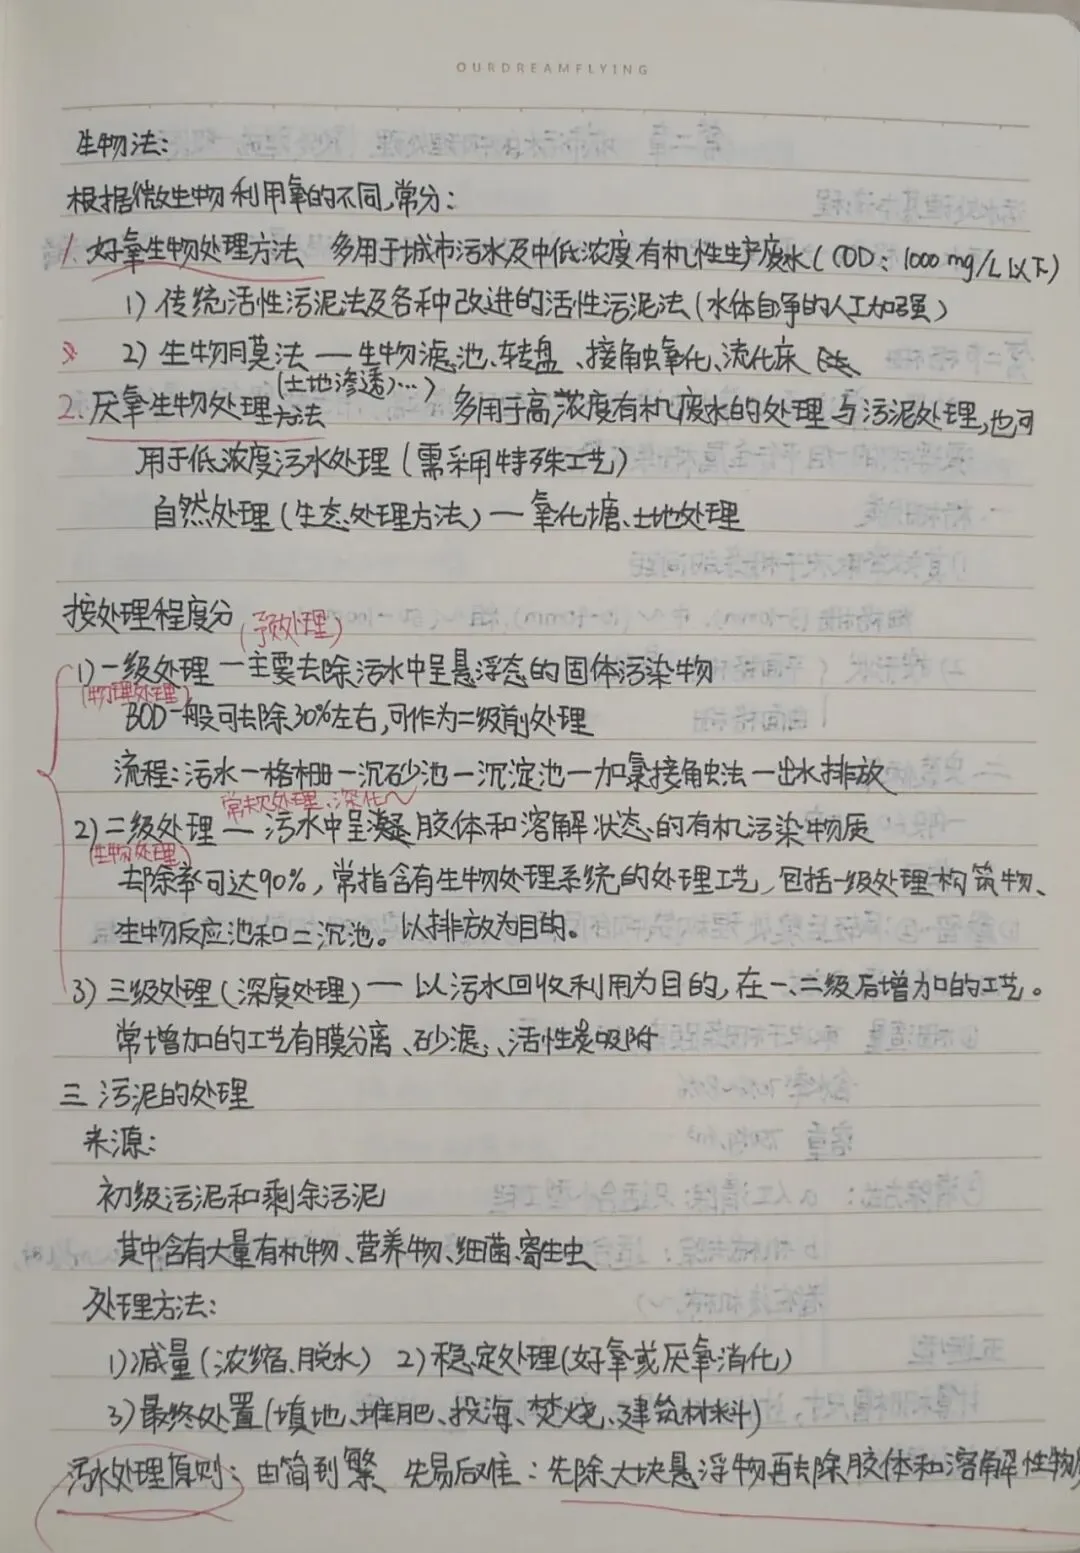 OURDREAMFLYING
生物法:
根据微生物利用氧的不同,常分:
1. 好氧生物处理方法 多用于城市污水及中低浓度有机性生产废水(COD: 1000mg/L以下)
1) 传统活性污泥法及各种改进的活性污泥法(水体自净的人工加强)
2) 生物膜法 — 生物滤池、转盘、接触氧化、流化床
(土地渗透)…)
2. 厌氧生物处理方法 多用于高浓度有机废水的处理与污泥处理,也可
用于低浓度污水处理(需采用特殊工艺)
自然处理(生态处理方法) — 氧化塘、土地处理
按处理程度分
(预处理)
1) 一级处理 — 主要去除污水中呈悬浮态的固体污染物
(物理处理)
BOD一般可去除30%左右,可作为二级前处理
流程:污水—格栅—沉砂池—沉淀池—加氯接触法—出水排放
常规处理、深化~
2) 二级处理 — 污水中呈胶体和溶解状态的有机污染物质
(生物处理)
去除率可达90%,常指含有生物处理系统的处理工艺,包括一级处理构筑物、
生物反应池和二沉池。以排放为目的。
3) 三级处理(深度处理) — 以污水回收利用为目的,在一、二级后增加的工艺。
常增加的工艺有膜分离、砂滤、活性炭吸附
三 污泥的处理
来源:
初级污泥和剩余污泥
其中含有大量有机物、营养物、细菌、寄生虫
处理方法:
1)减量(浓缩、脱水) 2)稳定处理(好氧或厌氧消化)
3)最终处置(填地、堆肥、投海、焚烧、建筑材料)
污水处理原则: 由简到繁 先易后难:先除大块悬浮物再去除胶体和溶解性物